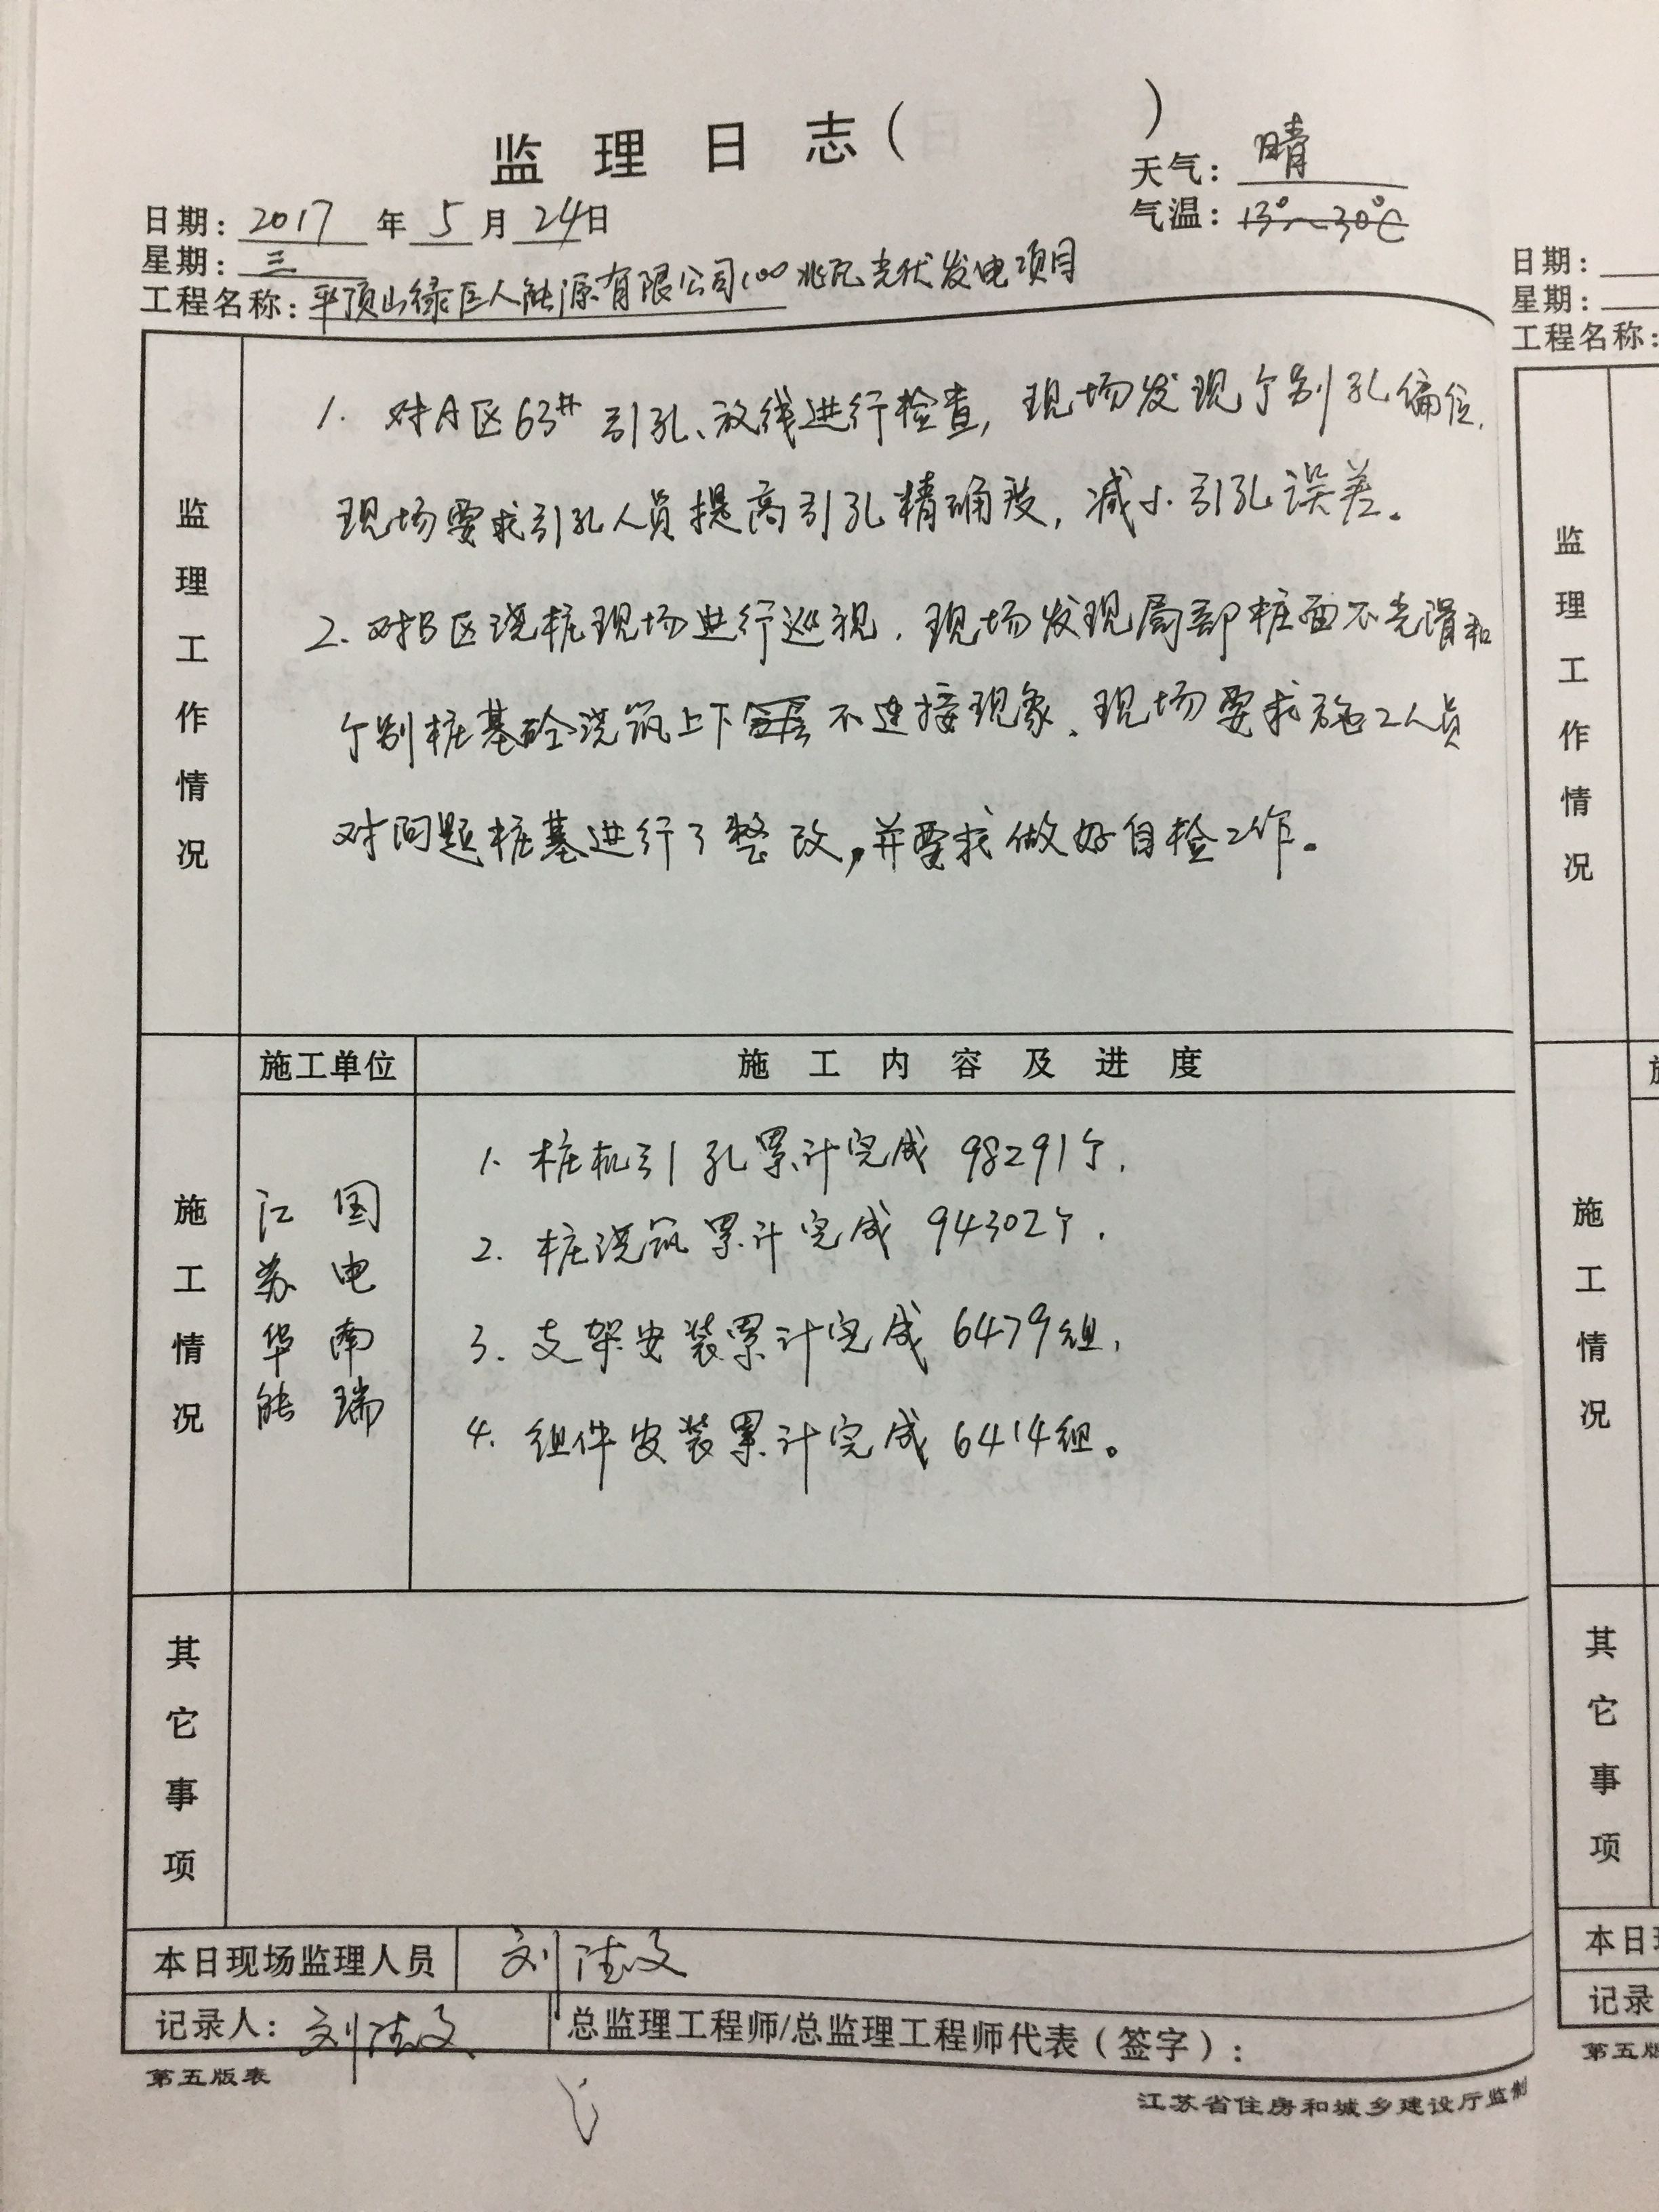 监理日志（　　　）
天气：晴
日期：2017年5月24日
气温：13°~30℃
星期：三
工程名称：平顶山绿巨人能源有限公司100兆瓦光伏发电项目
监理工作情况
1. 对A区63#引孔、放线进行检查，现场发现个别孔偏位.
现场要求引孔人员提高引孔精确度，减小引孔误差。
2. 对B区浇桩现场进行巡视．现场发现局部桩面不光滑和
个别桩基砼浇筑上下 不连接现象、现场要求施工人员
对问题桩基进行了整改，并要求做好自检工作。
施工情况
施工单位 施工内容及进度
江苏华能
国电南瑞
1. 桩机引孔累计完成98291个.
2. 桩浇筑累计完成94302个.
3. 支架安装累计完成6479组.
4. 组件安装累计完成6414组。
其它事项
本日现场监理人员 刘 文
记录人：刘 文 总监理工程师/总监理工程师代表（签字）：
第五版表
江苏省住房和城乡建设厅监制
日期：
星期：
工程名称：
监理工作情况
施工情况
其它事项
本日
记录
第五版